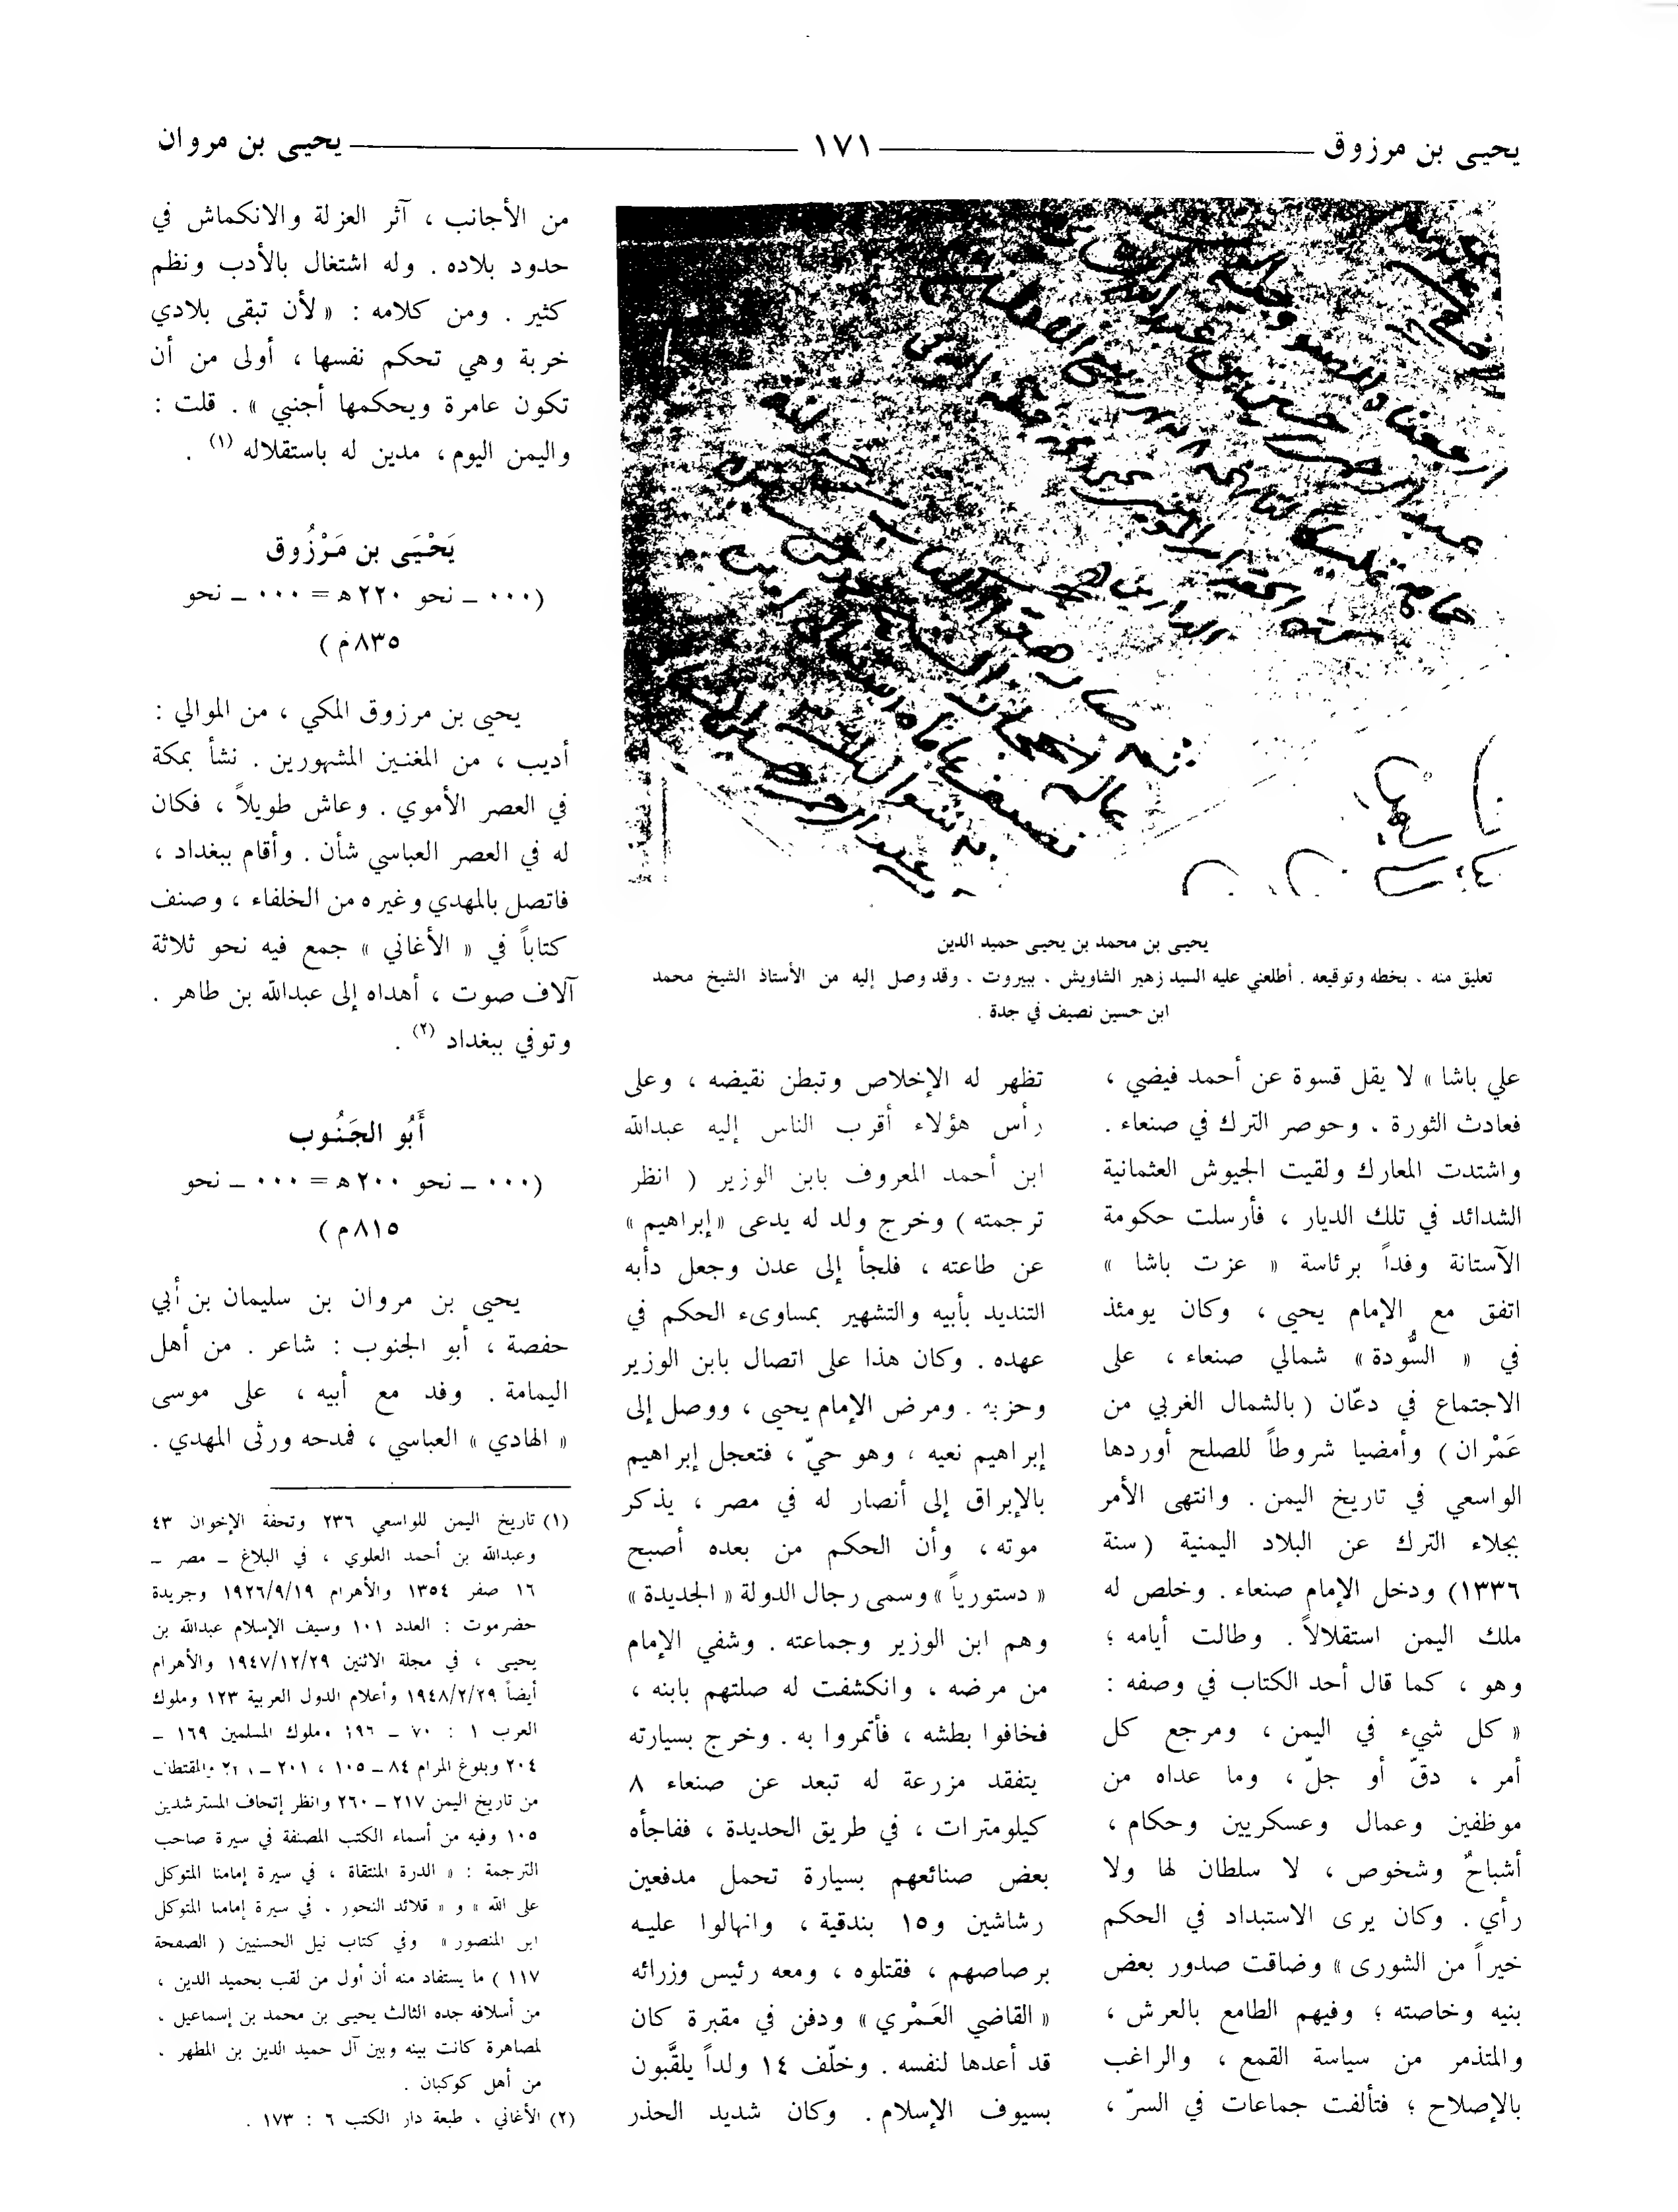 يحيى بن مرزوق ١٧١ يحيى بن مروان
يحيى بن محمد بن يحيى حميد الدين
تعليق منه ، بخطه وتوقيعه . أطلعني عليه السيد زهير الشاويش ، ببيروت ، وقد وصل إليه من الأستاذ الشيخ محمد
ابن حسين نصيف في جدة .
علي باشا » لا يقل قسوة عن أحمد فيضي ،
فعادت الثورة ، وحوصر الترك في صنعاء .
واشتدت المعارك ولقيت الجيوش العثمانية
الشدائد في تلك الديار ، فأرسلت حكومة
الآستانة وفداً برئاسة « عزت باشا »
اتفق مع الإمام يحيى ، وكان يومئذ
في « السُّودة » شمالي صنعاء ، على
الاجتماع في دعّان ( بالشمال الغربي من
عَمْران ) وأمضيا شروطاً للصلح أوردها
الواسعي في تاريخ اليمن . وانتهى الأمر
بجلاء الترك عن البلاد اليمنية ( سنة
١٣٣٦) ودخل الإمام صنعاء . وخلص له
ملك اليمن استقلالاً . وطالت أيامه ؛
وهو ، كما قال أحد الكتاب في وصفه :
« كل شيء في اليمن ، ومرجع كل
أمر ، دقّ أو جلّ ، وما عداه من
موظفين وعمال وعسكريين وحكام ،
أشباحٌ وشخوص ، لا سلطان لها ولا
رأي . وكان يرى الاستبداد في الحكم
خيراً من الشورى » وضاقت صدور بعض
بنيه وخاصته ؛ وفيهم الطامع بالعرش ،
والمتذمر من سياسة القمع ، والراغب
بالإصلاح ؛ فتألفت جماعات في السرّ ،
تظهر له الإخلاص وتبطن نقيضه ، وعلى
رأس هؤلاء أقرب الناس إليه عبدالله
ابن أحمد المعروف بابن الوزير ( انظر
ترجمته ) وخرج ولد له يدعى « إبراهيم »
عن طاعته ، فلجأ إلى عدن وجعل دأبه
التنديد بأبيه والتشهير بمساوىء الحكم في
عهده . وكان هذا على اتصال بابن الوزير
وحزبه . ومرض الإمام يحيى ، ووصل إلى
إبراهيم نعيه ، وهو حيّ ، فتعجل إبراهيم
بالإبراق إلى أنصار له في مصر ، يذكر
موته ، وأن الحكم من بعده أصبح
« دستورياً » وسمى رجال الدولة « الجديدة »
وهم ابن الوزير وجماعته . وشفي الإمام
من مرضه ، وانكشفت له صلتهم بابنه ،
فخافوا بطشه ، فأتمروا به . وخرج بسيارته
يتفقد مزرعة له تبعد عن صنعاء ٨
كيلومترات ، في طريق الحديدة ، ففاجأه
بعض صنائعهم بسيارة تحمل مدفعين
رشاشين و١٥ بندقية ، وانهالوا عليه
برصاصهم ، فقتلوه ، ومعه رئيس وزرائه
« القاضي العَمْري » ودفن في مقبرة كان
قد أعدها لنفسه . وخلّف ١٤ ولداً يلقَّبون
بسيوف الإسلام . وكان شديد الحذر
من الأجانب ، آثر العزلة والانكماش في
حدود بلاده . وله اشتغال بالأدب ونظم
كثير . ومن كلامه : « لأن تبقى بلادي
خربة وهي تحكم نفسها ، أولى من أن
تكون عامرة ويحكمها أجنبي » . قلت :
واليمن اليوم ، مدين له باستقلاله (١) .
يَحْيَى بن مَرْزُوق
(٠٠٠ ــ نحو ٢٢٠هـ = ٠٠٠ ــ نحو
٨٣٥م )
يحيى بن مرزوق المكي ، من الموالي :
أديب ، من المغنين المشهورين . نشأ بمكة
في العصر الأموي . وعاش طويلاً ، فكان
له في العصر العباسي شأن . وأقام ببغداد ،
فاتصل بالمهدي وغيره من الخلفاء ، وصنف
كتاباً في « الأغاني » جمع فيه نحو ثلاثة
آلاف صوت ، أهداه إلى عبدالله بن طاهر .
وتوفي ببغداد (٢) .
أَبُو الجَنُوب
(٠٠٠ ــ نحو ٢٠٠هـ = ٠٠٠ ــ نحو
٨١٥م )
يحيى بن مروان بن سليمان بن أبي
حفصة ، أبو الجنوب : شاعر . من أهل
اليمامة . وفد مع أبيه ، على موسى
« الهادي » العباسي ، فمدحه ورثى المهدي .
(١) تاريخ اليمن للواسعي ٢٣٦ وتحفة الإخوان ٤٣
وعبدالله بن أحمد العلوي ، في البلاغ ــ مصر ــ
١٦ صفر ١٣٥٤ والأهرام ١٩٢٦/٩/١٩ وجريدة
حضرموت : العدد ١٠١ وسيف الإسلام عبدالله بن
يحيى ، في مجلة الاثنين ١٩٤٧/١٢/٢٩ والأهرام
أيضاً ١٩٤٨/٢/٢٩ وأعلام الدول العربية ١٢٣ وملوك
العرب ١ : ٧٠ ــ ١٩٦ وملوك المسلمين ١٦٩ ــ
٢٠٤ وبلوغ المرام ٨٤ ــ ١٠٥ ، ٢٠١ ــ والمقتطف
من تاريخ اليمن ٢١٧ ــ ٢٦٠ وانظر إتحاف المسترشدين
١٠٥ وفيه من أسماء الكتب المصنفة في سيرة صاحب
الترجمة : « الدرة المنتقاة ، في سيرة إمامنا المتوكل
على الله » و « قلائد النحور ، في سيرة إمامنا المتوكل
ابن المنصور » وفي كتاب نيل الحسنيين ( الصفحة
١١٧ ) ما يستفاد منه أن أول من لقب بحميد الدين ،
من أسلافه جده الثالث يحيى بن محمد بن إسماعيل ،
لمصاهرة كانت بينه وبين آل حميد الدين بن المطهر ،
من أهل كوكبان .
(٢) الأغاني ، طبعة دار الكتب ٦ : ١٧٣ .